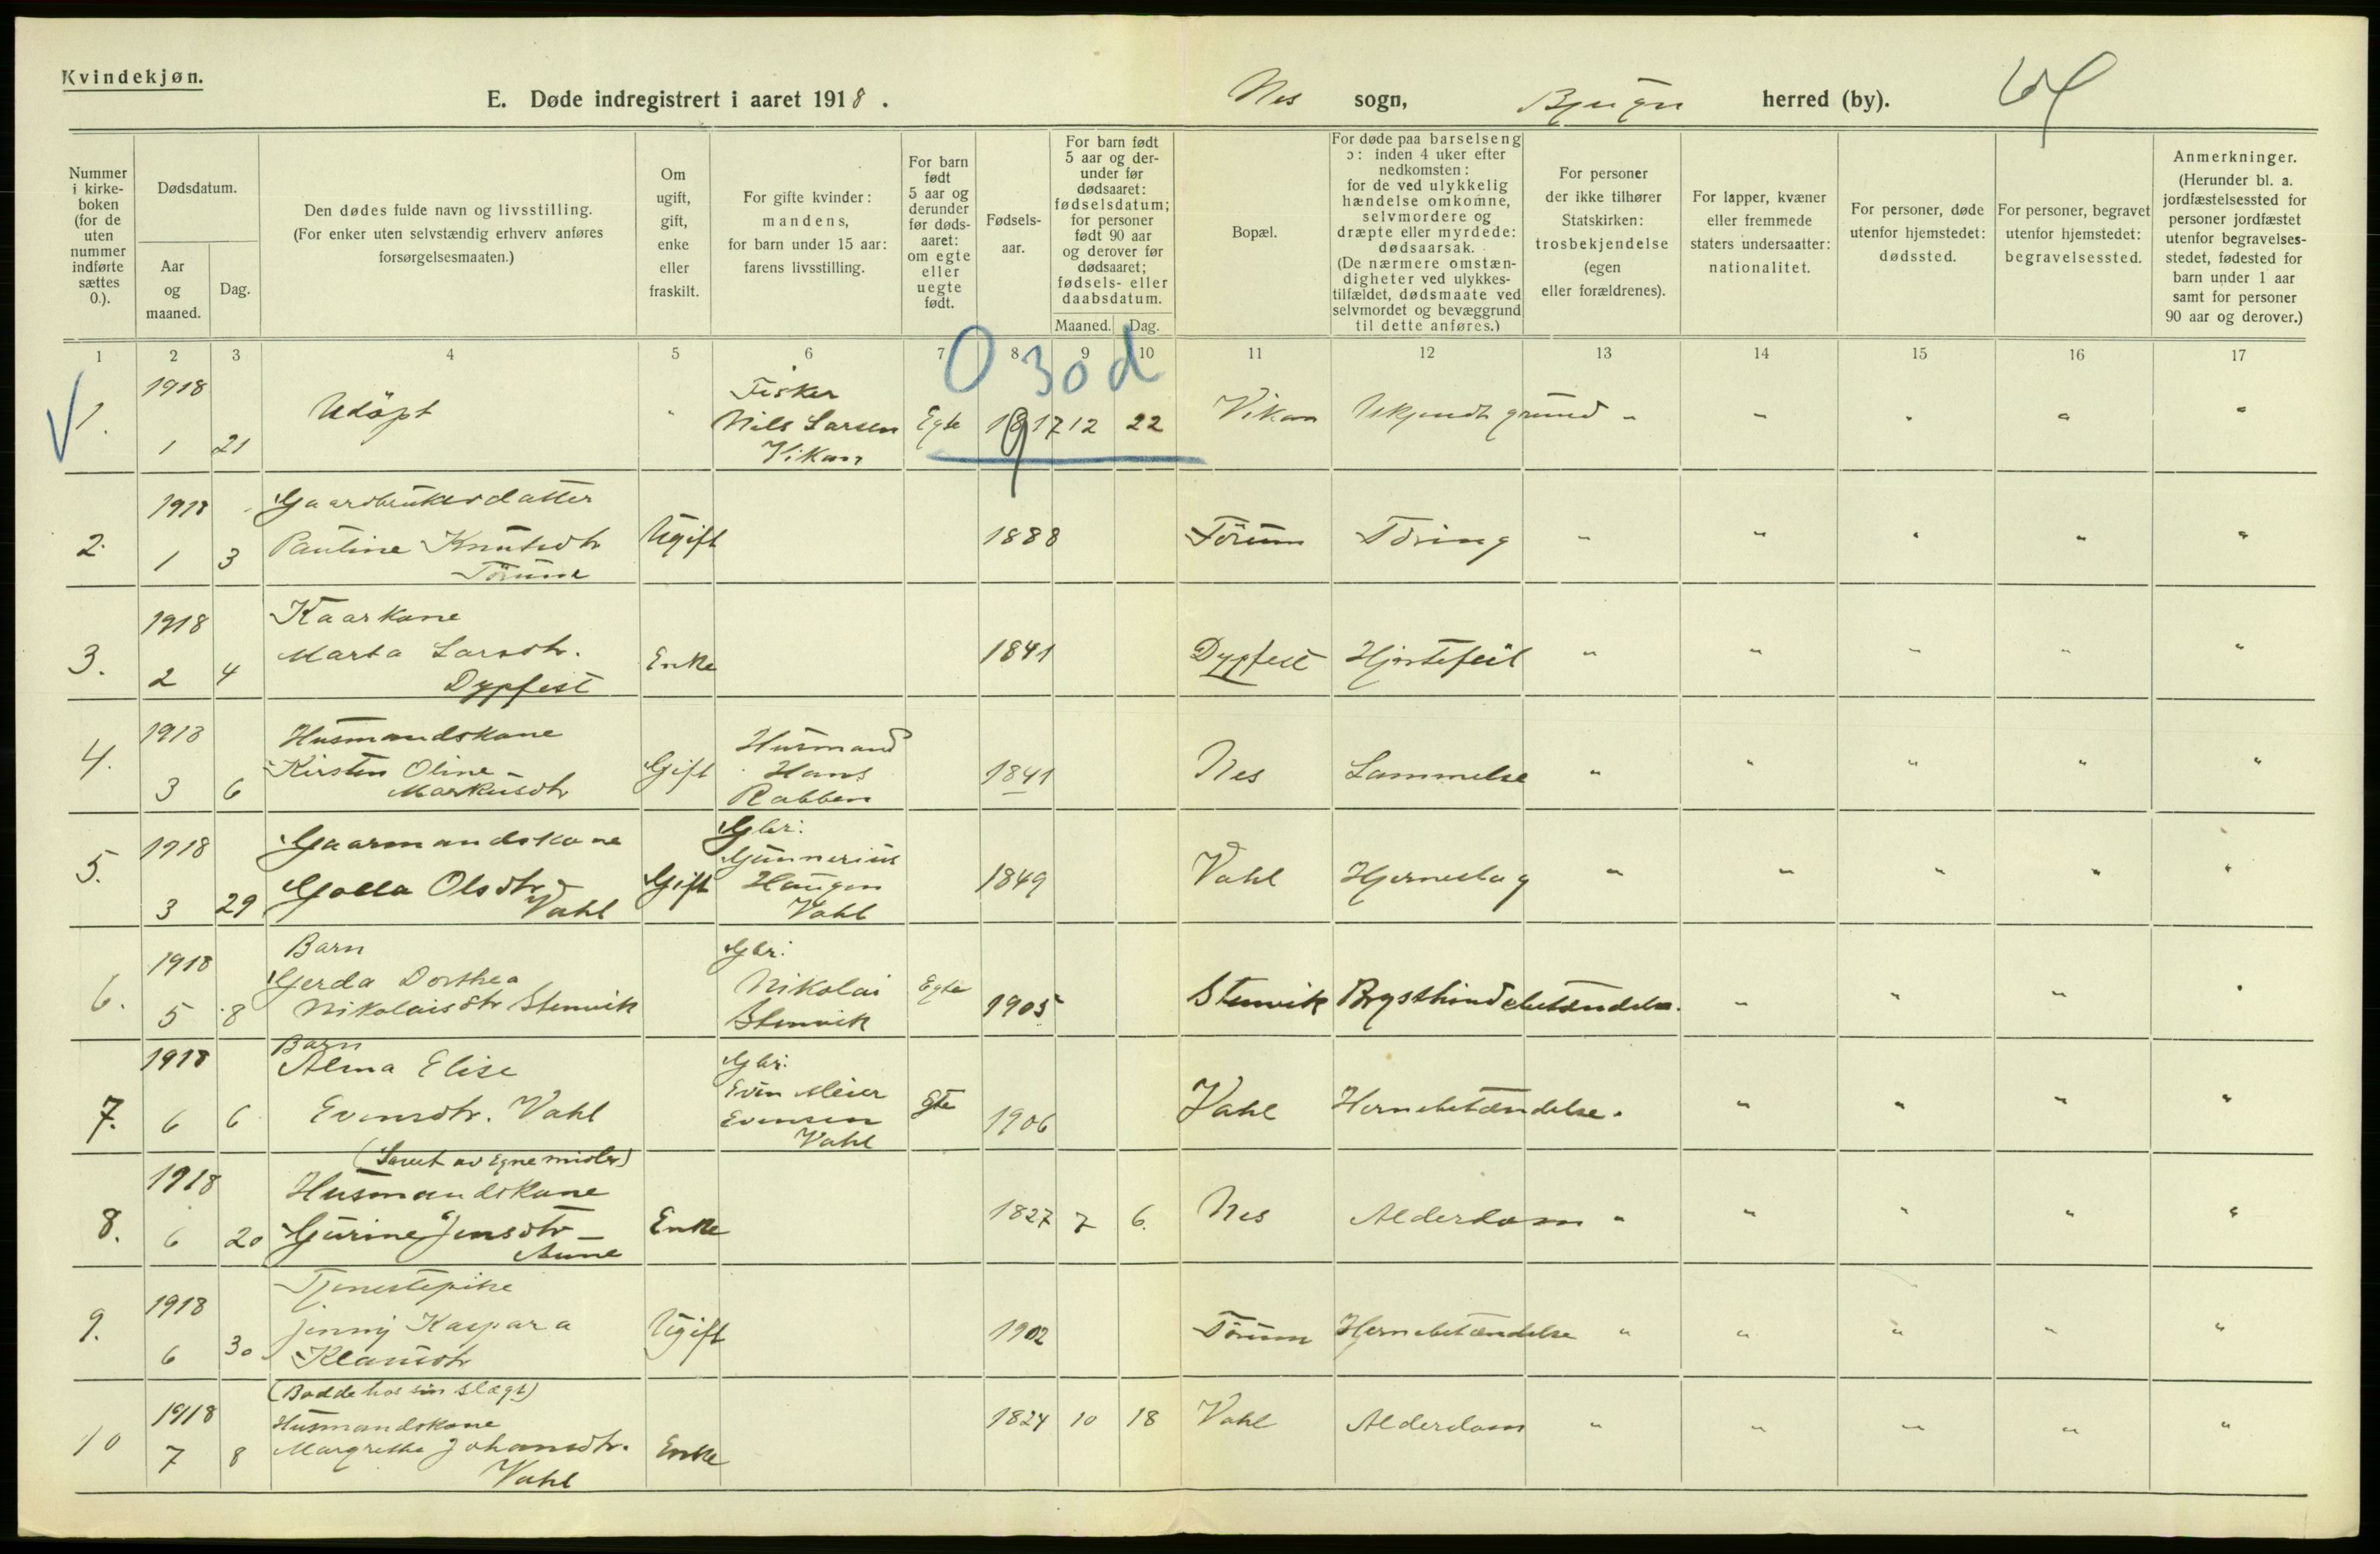 Kvindekjøn.
E. Døde indregistrert i aaret 1918.
Nes sogn, Bjugn herred (by).
Nummer i kirkeboken (for de uten nummer indførte sættes 0.).
Dødsdatum.
Aar og maaned.
Dag.
Den dødes fulde navn og livsstilling.
(For enker uten selvstændig erhverv anføres forsørgelsesmaaten.)
Om ugift, gift, enke eller fraskilt.
For gifte kvinder: mandens, for barn under 15 aar: farens livsstilling.
For barn født 5 aar og derunder før dødsaaret: om egte eller uegte født.
Fødselsaar.
For barn født 5 aar og derunder før dødsaaret: fødselsdatum; for personer født 90 aar og derover før dødsaaret; fødsels- eller daabsdatum.
Maaned. Dag.
Bopæl.
For døde paa barselseng ɔ: inden 4 uker efter nedkomsten: for de ved ulykkelig hændelse omkomne, selvmordere og dræpte eller myrdede: dødsaarsak. (De nærmere omstændigheter ved ulykkestilfældet, dødsmaate ved selvmordet og bevæggrund til dette anføres.)
For personer der ikke tilhører Statskirken: trosbekjendelse (egen eller forældrenes).
For lapper, kvæner eller fremmede staters undersaatter: nationalitet.
For personer, døde utenfor hjemstedet: dødssted.
For personer, begravet utenfor hjemstedet: begravelsessted.
Anmerkninger. (Herunder bl. a. jordfæstelsessted for personer jordfæstet utenfor begravelsesstedet, fødested for barn under 1 aar samt for personer 90 aar og derover.)
1 2 3 4 5 6 7 8 9 10 11 12 13 14 15 16 17
0 30 d
1. 1918 1 21 Udöpt " Fisker Nils Larsen Vikan Egte 1917 12 22 Vikan Ukjendt grund " " " " "
2. 1918 1 3 Gaardbrukerdatter Pauline Knutsdtr Törum Ugift 1888 Törum Töring " " " " "
3. 1918 2 4 Kaarkone Marta Larsdtr. Dypfest Enke 1841 Dypfest Hjertefeil " " " " "
4. 1918 3 6 Husmandskone Kirsten Oline Markusdtr Gift Husmand Hans Rabben 1841 Nes Lammelse " " " " "
5. 1918 3 29 Gaarmandskone Olsdtr Vahl Gift Gbr. Gunnerius Haugen Vahl 1849 Vahl Hjerneslag " " " " "
6. 1918 5 8 Barn Gerda Dorthea Nikolaisdtr Stenvik Gbr. Nikolai Stenvik Egte 1905 Stenvik Brysthindebetændelse. " " " "
7. 1918 6 6 Barn Alma Elise Evensdtr. Vahl Gbr. Even Meier Evensen Vahl Egte 1906 Vahl Hernebetændelse. " " " "
8. 1918 6 20 (Levet av egne midler) Husmandskone Gurine Jensdtr Aune Enke 1827 7 6. Nes Alderdom " " " " "
9. 1918 6 30 Tjenestepike Jenny Kaspara Klausdtr Ugift 1902 Törum Hernebetændelse " " " " "
10 1918 7 8 (Bodde hos sin slægt) Husmandskone Margrethe Johansdtr. Vahl Enke 1824 10 18 Vahl Alderdom " " " " "